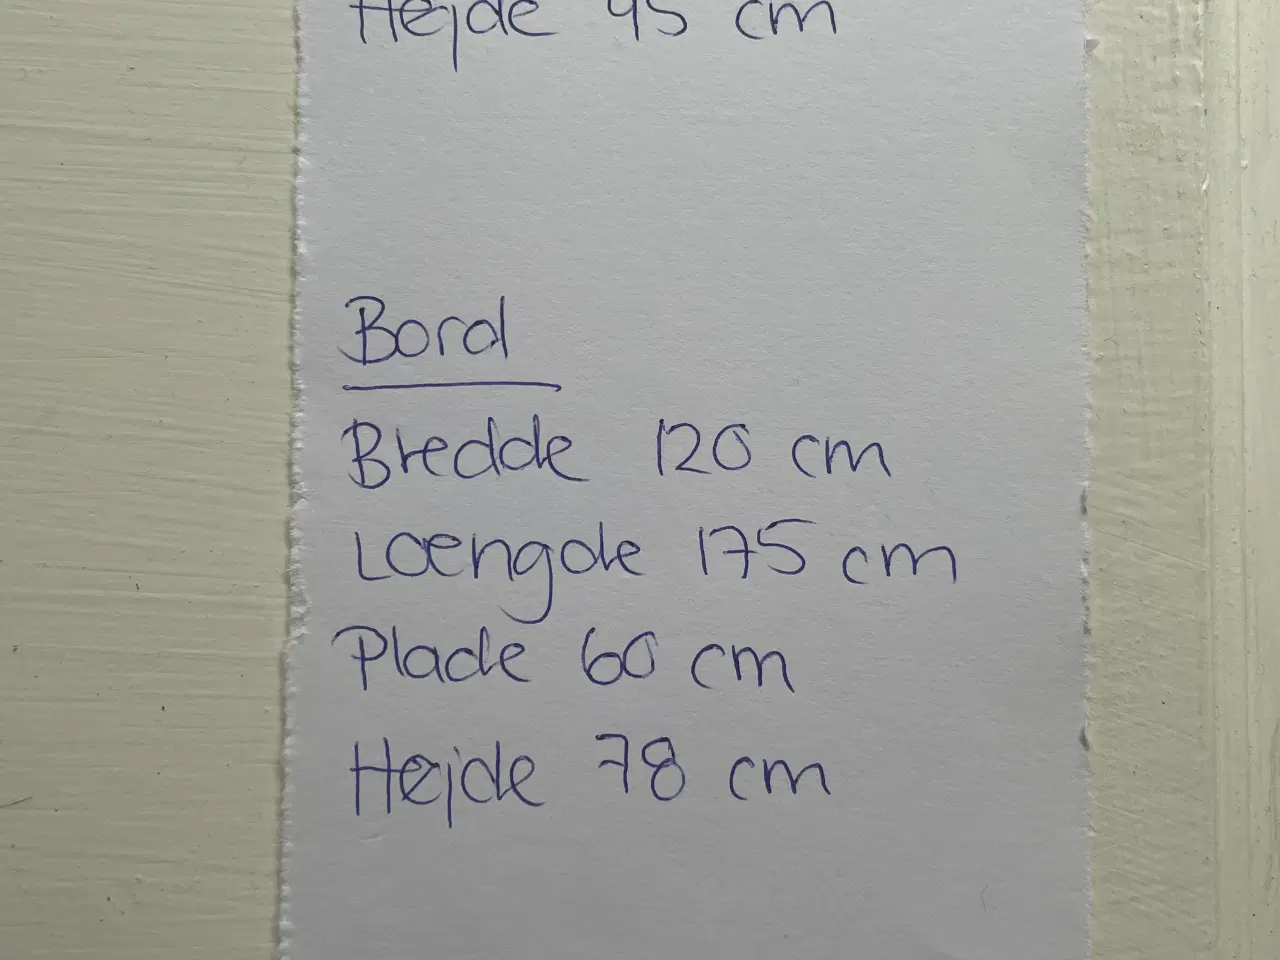 Højde 45 cm
Bord
Bredde 120 cm
Længde 175 cm
Plade 60 cm
Højde 78 cm